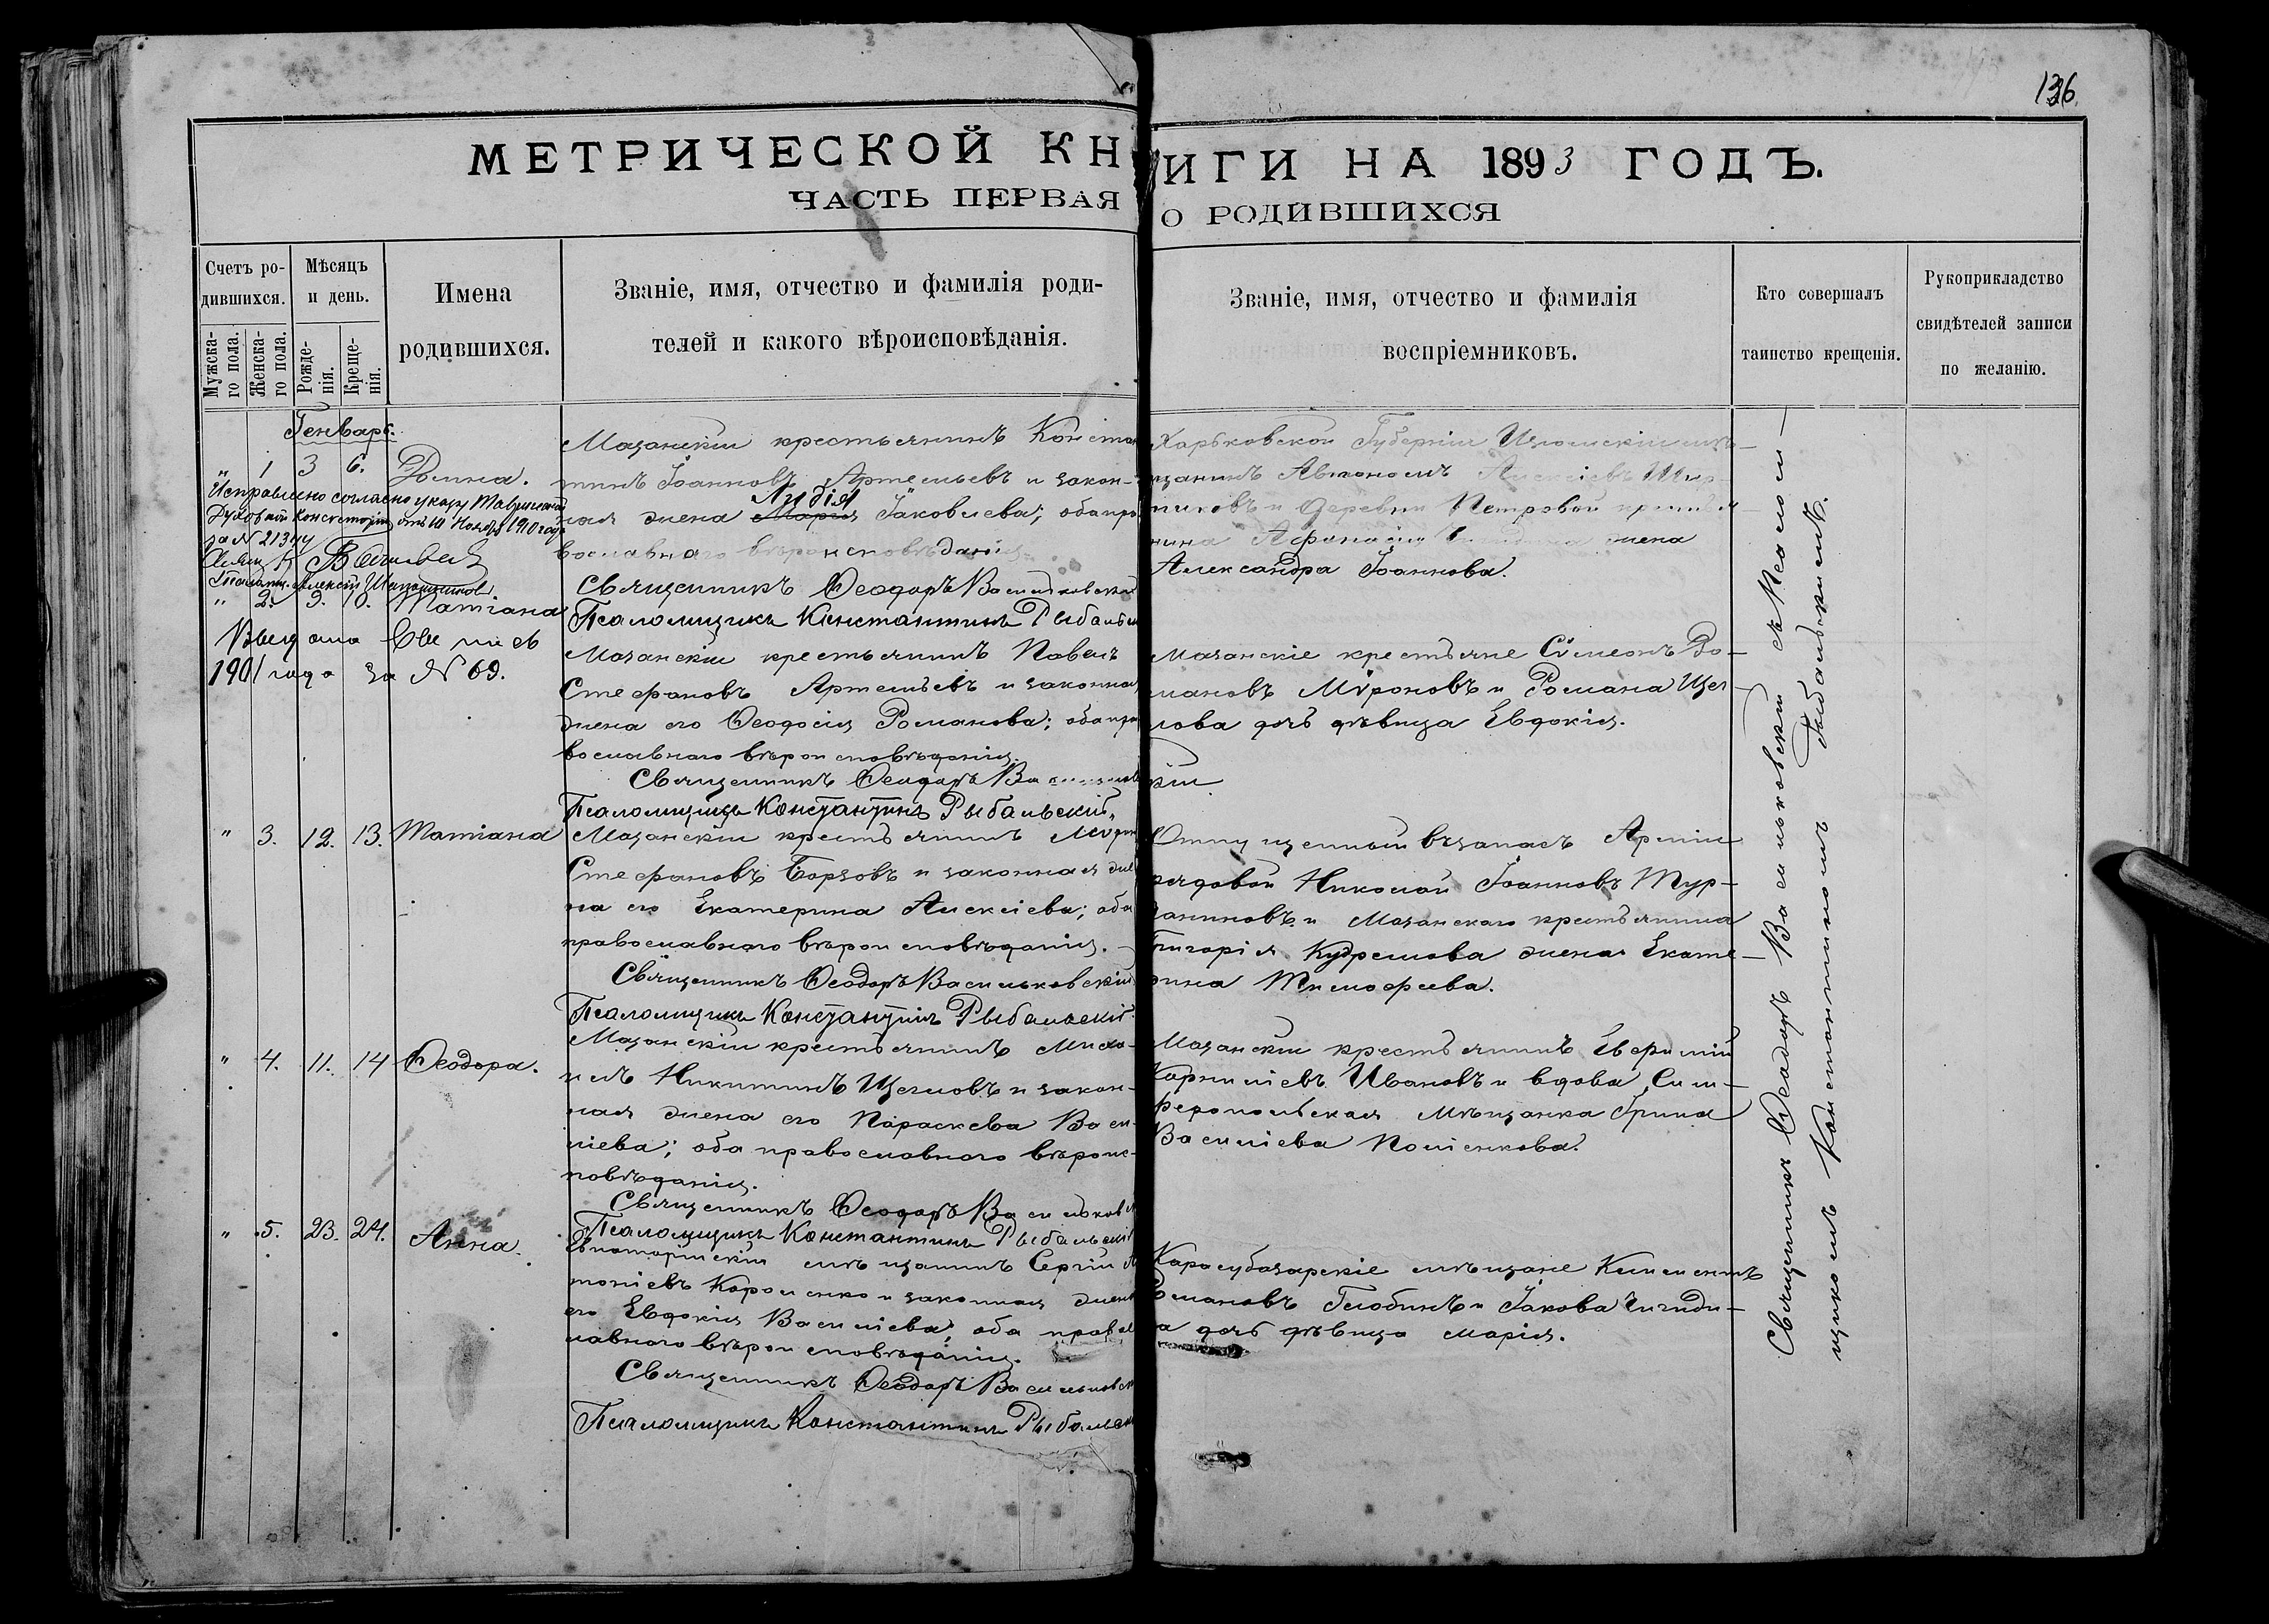 136
МЕТРИЧЕСКОЙ КНИГИ НА 1893 ГОДЪ.
ЧАСТЬ ПЕРВАЯ О РОДИВШИХСЯ
Счетъ ро-
дившихся.
Мужска-
го пола.
Женска-
го пола.
Мѣсяцъ
и день.
Рожде-
нія.
Креще-
нія.
Имена
родившихся.
Званіе, имя, отчество и фамилія роди-
телей и какого вѣроисповѣданія.
Званіе, имя, отчество и фамилія
воспріемниковъ.
Кто совершалъ
таинство крещенія.
Рукоприкладство
свидѣтелей записи
по желанію.
Генварь.
" 1 3 6. Домна.
Исправлено согласно указу Таврической
Духовной Консисторіи отъ 10 Ноября 1910 года
за № 21344
Мазанскій крестьянинъ Конста
тинъ Іоанновъ Артемьевъ и закон-
Лидія
ная жена Марія Іаковлева; оба пра
вославнаго вѣроисповѣданія.
Священникъ Ѳеодоръ Васильковскій
Псаломщикъ Константинъ Рыбальск
Харьковской Губерніи Изюмскій мѣ-
щанинъ Автономъ
никовъ и деревни Петровой
нина жена
Александра Іоаннова.
" 2. 9. 10. Татіана
Выдана
1901 года за № 69.
Мазанскій крестьянинъ Павелъ
Стефановъ Артемьевъ и законная
жена его Ѳеодосія Романова; оба пра
вославнаго вѣроисповѣданія.
Священникъ Ѳеодоръ Васильковскій
Псаломщикъ Константинъ Рыбальскій
Мазанскіе крестьяне Симеонъ Ро-
мановъ Мѵроновъ и Романа Щег-
лова дочь дѣвица Евдокія.
" 3. 12. 13. Татіана
Мазанскій крестьянинъ
Стефановъ Борзовъ и законная же
на его Екатерина Алексіева; оба
православнаго вѣроисповѣданія.
Священникъ Ѳеодоръ Васильковскій
Псаломщикъ Константинъ Рыбальскій
Отпущенный въ запасъ Арміи
рядовой Николай Іоанновъ Тур-
ваниновъ и Мазанскаго крестьянина
Григорія Кудряшова жена Екате-
рина Тимофеева.
" 4. 11. 14 Ѳеодора.
Мазанскій крестьянинъ Миха-
илъ Никитинъ Щегловъ и закон-
ная жена его Параскева Васи-
ліева; оба православнаго вѣроис-
повѣданія.
Священникъ Ѳеодоръ Васильковск
Псаломщикъ Константинъ Рыбальскій
Мазанскій крестьянинъ Евфимій
Корниліевъ Ивановъ и вдова Сим-
феропольская мѣщанка Ірина
Василіева
" 5. 23. 24. Анна.
Евпаторійскій мѣщанинъ Сергій
тоніевъ Короленко и законная жена
его Евдокія Василіева; оба правос
лавнаго вѣроисповѣданія.
Священникъ Ѳеодоръ Васильковск
Псаломщикъ Константинъ Рыбальск
Карасубазарскіе мѣщане Климентъ
Романовъ Глобинъ и Іакова
а дочь дѣвица Марія.
Священникъ Ѳеодоръ Васильковскій съ Псалом-
щикомъ Константиномъ Рыбальскимъ.